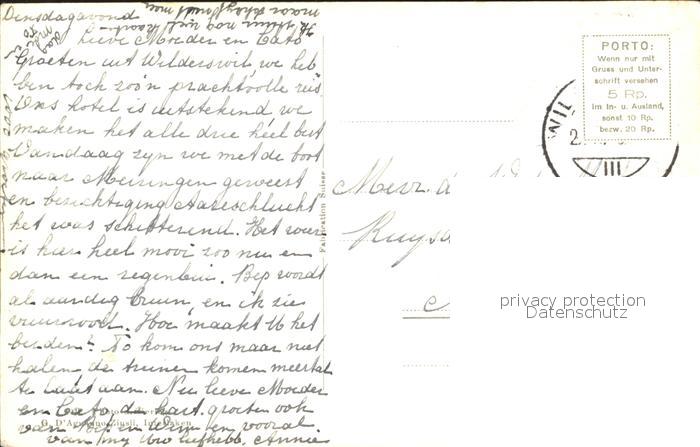 Dinsdagavond
Lieve Moeder en Cato
Groeten uit Wilderswil we heb
ben toch zoo'n prachtvolle reis
Ons hotel is uitstekend we
maken het alle drie heel best
Vandaag zyn we met de boot
naar Meiringen geweest
en bezichtiging Aareschlucht
het was schitterend. Het weer
is hier heel mooi zoo nu en
dan een regenbui. Bep wordt
al aardig bruin, en ik zie
vuurrood. Hoe maakt U het
beiden? To kom ons maar niet
halen de treinen komen meestal
te laat aan. Nu lieve Moeder
en Cato de hart. groeten ook
van Bep en Wim en vooral
van my Uw liefhebb. Annie
Fabrication Suisse
PORTO:
Wenn nur mit
Gruss und Unter-
schrift versehen
5 Rp.
im In- u. Ausland,
sonst 10 Rp.
bezw. 20 Rp.
WIL
VIII
Mevr. d
Ruys
privacy protection
Datenschutz